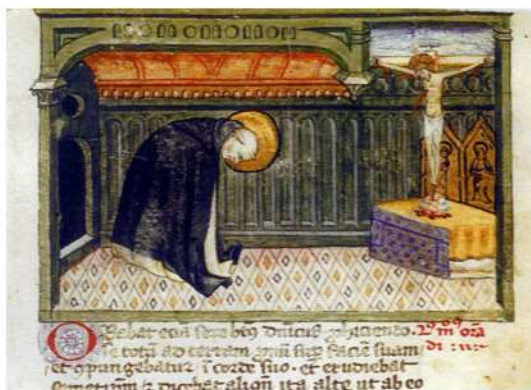 Orabat ecia sepe btus dnicus phiciendo. orā
se totū ad terram pnū sup faciē suam di
et ɔpungebatur ī corde suo · et erudiebat
semetipm & dicebat aliqn̄ ita alte ut ab eo